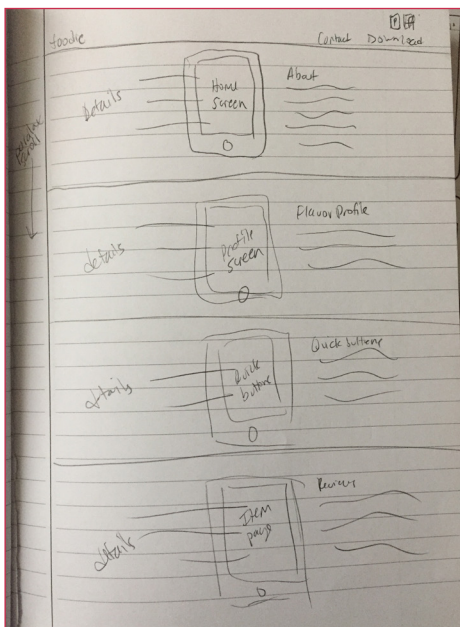 foodie
Contact Download
parallax scroll
Details
Home
Screen
About
details
Profile
Screen
Flavor Profile
details
Quick
buttons
Quick buttons
details
Item
page
Reviews